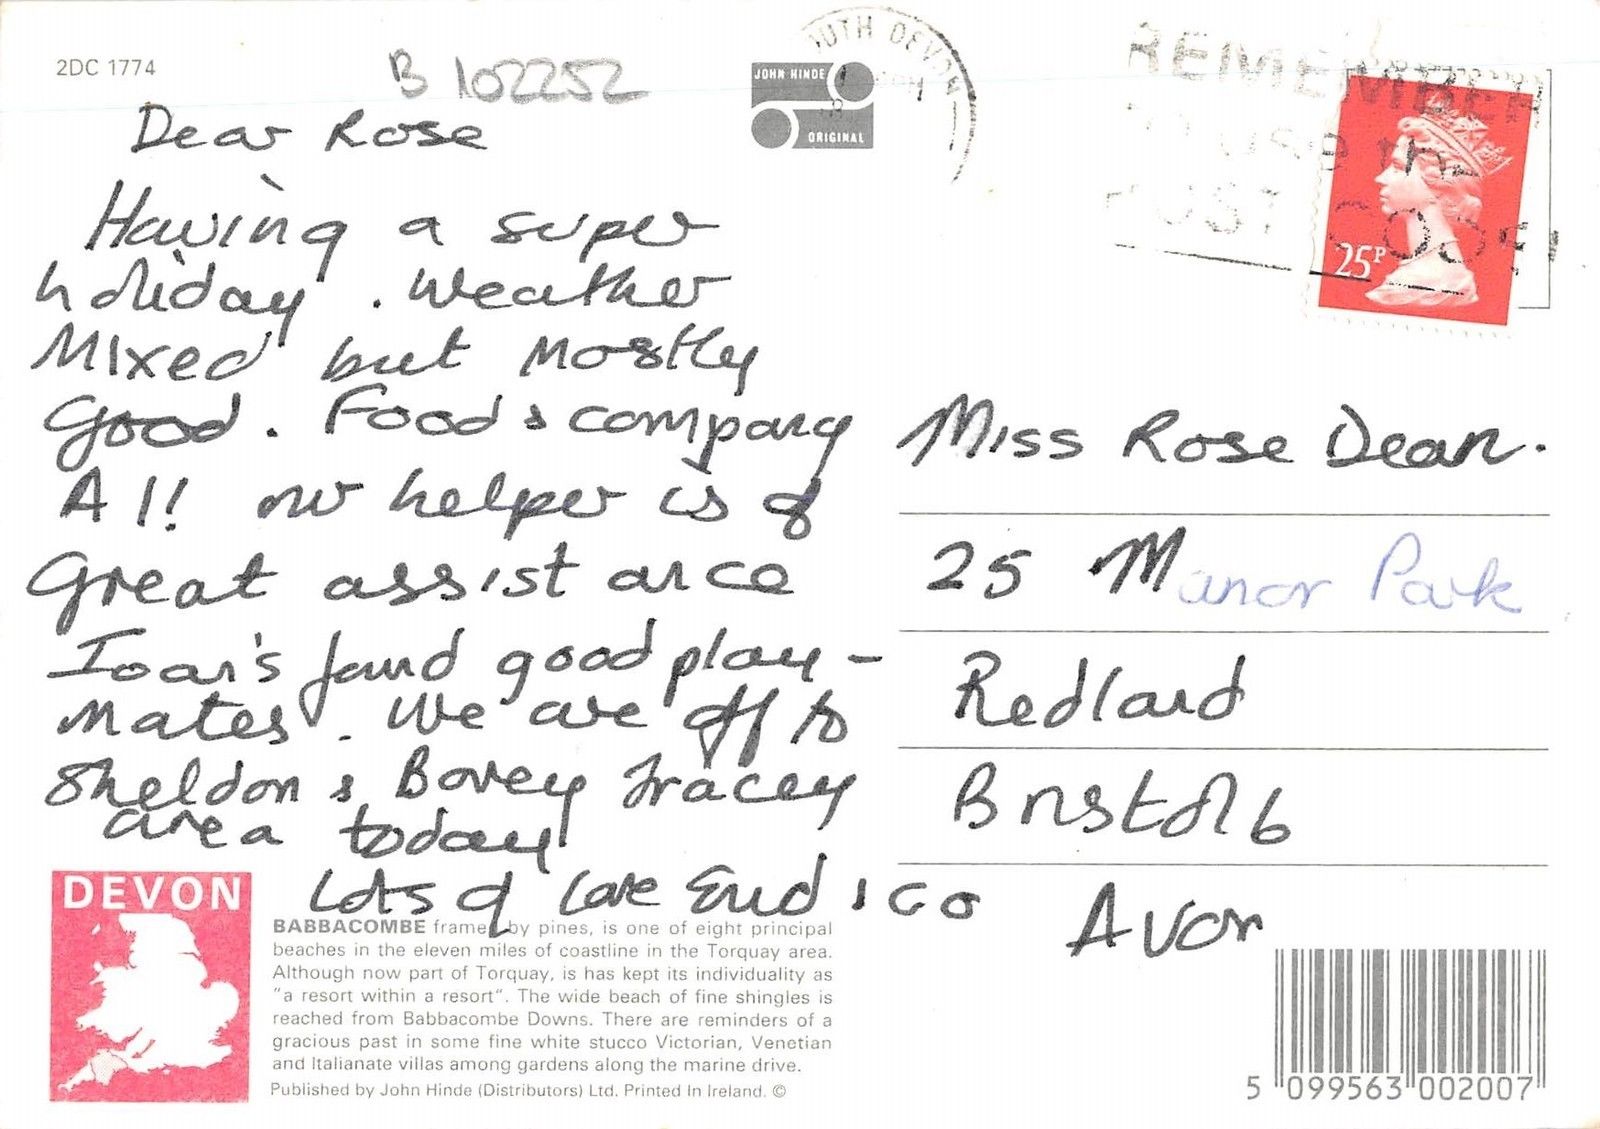 2DC 1774
B 102252
JOHN HINDE
ORIGINAL
UTH DEVON
REMEMBER
use the
POST CODE
25P
Dear Rose
Having a super
holiday. Weather
Mixed but Mostly
Good. Food & company
A1! our helper is of
Great assistance
Ioan's found good play-
mates. We are off to
Sheldon & Bovey Tracey
area today
Lots of love Enid & Co
Miss Rose Dean.
25 Manor Park
Redland
Bristol 6
Avon
DEVON
BABBACOMBE frame by pines, is one of eight principal
beaches in the eleven miles of coastline in the Torquay area.
Although now part of Torquay, is has kept its individuality as
"a resort within a resort". The wide beach of fine shingles is
reached from Babbacombe Downs. There are reminders of a
gracious past in some fine white stucco Victorian, Venetian
and Italianate villas among gardens along the marine drive.
Published by John Hinde (Distributors) Ltd. Printed In Ireland. ©
5 099563 002007